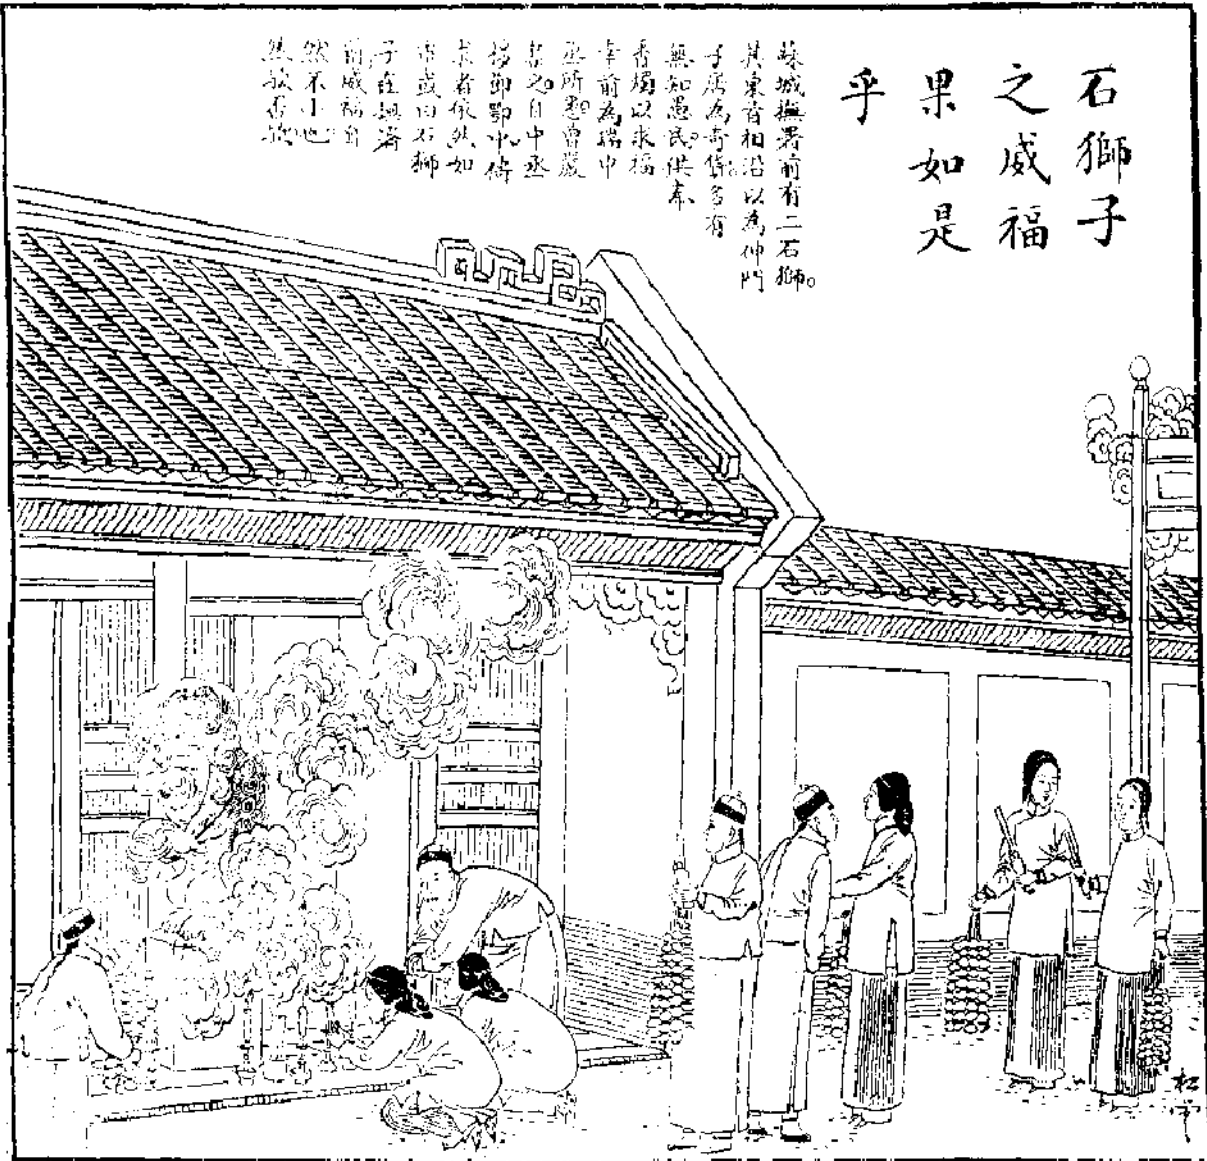 石獅子
之威福
果如是
乎
蘇城撫署前有二石獅。
其東首相沿以為仲門
子居為奇貨。多有
無知愚民。供奉
香燭以求福
幸前為瑞中
丞所悉。曾嚴
禁之。自中丞
移節鄂中。倚
求者依然如
市或曰石獅
子在撫署
前威福自
然不小也
然歟否歟
松雲